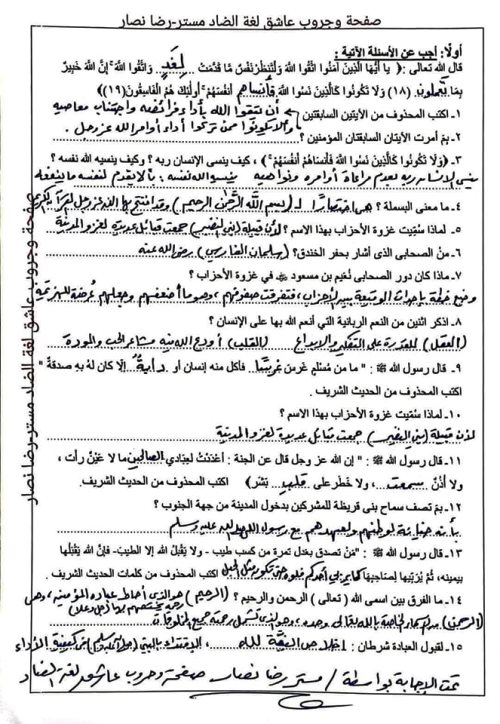 صفحة وجروب عاشق لغة الضاد مستر-رضا نصار
أولًا: أجب عن الأسئلة الآتية :
قال الله تعالى :( يا أيها الذين آمنوا اتقوا الله ولتنظر نفس ما قدمت لغد واتقوا الله إن الله خبير
بما تعملون (١٨) ولا تكونوا كالذين نسوا الله فأنساهم أنفسهم أولئك هم الفاسقون(١٩))
١- اكتب المحذوف من الآيتين السابقتين
٢- بم أمرت الآيتان السابقتان المؤمنين ؟
أن يتقوا الله بأداء فرائضه واجتناب معاصيه
وألا يكونوا ممن تركوا أداء أوامر الله عز وجل.
٣- (ولا تكونوا كالذين نسوا الله فأنساهم أنفسهم) ، كيف ينسى الإنسان ربه ؟ وكيف ينسيه الله نفسه ؟
ينسى الإنسان ربه بعدم مراعاة أوامره ونواهيه ينسيه الله نفسه : بألا يقدم لنفسه ما ينفعه
٤- ما معنى البسملة ؟ هي اختصارًا لـ (بسم الله الرحمن الرحيم)
٥- لماذا سُمّيت غزوة الأحزاب بهذا الاسم ؟ لأن قبيلة (بني النضير) جمعت قبائل عديدة لغزو المدينة
٦- من الصحابى الذى أشار بحفر الخندق؟ (سلمان الفارسي) رضى الله عنه
٧- ماذا كان دور الصحابى نُعيم بن مسعود في غزوة الأحزاب ؟
وضع خطة بإحداث الوقيعة بين الأحزاب، فتفرقت صفوفهم، وهو ما أضعفهم وجعلهم عُرضة للهزيمة
٨- اذكر اثنين من النعم الربانية التي أنعم الله بها على الإنسان ؟
(العقل) للقدرة على التفكير والإبداع (القلب) أودع الله فيه مشاعر الحب والمودة
٩- قال رسول الله ﷺ : " ما من مُسْلمٍ غرسَ غرسًا.. فأكل منه إنسان أو دابةٌ إلَّا كان لهُ بهِ صدقةٌ "
اكتب المحذوف من الحديث الشريف.
١٠- لماذا سُمّيت غزوة الأحزاب بهذا الاسم ؟
لأن قبيلة (بني النضير) جمعت قبائل عديدة لغزو المدينة
١١- قال رسول الله ﷺ : " إن الله عز وجل قال عن الجنة : أعددتُ لعبادي الصالحين ما لا عَيْنٌ رأت ،
ولا أذُنٌ سمعت ، ولا خَطَر على قلب بَشَر) اكتب المحذوف من الحديث الشريف.
١٢- بمَ تصف سماح بنى قريظة للمشركين بدخول المدينة من جهة الجنوب ؟
بأنه خيانة لوطنهم ولعهدهم مع رسول الله صلى الله عليه وسلم
١٣- قال رسول الله ﷺ : "مَنْ تصدق بعَدل تمرة من كسب طيب - ولا يقبَلُ الله إلا الطيبَ- فإنَّ الله يَقْبَلُها
بيمينه، ثُمَّ يُرَبّيها لصاحبها كما يربي أحدكم فلوه حتى تكون مثل الجبل اكتب المحذوف من كلمات الحديث الشريف .
١٤- ما الفرق بين اسمى الله ( تعالى ) الرحمن والرحيم ؟ (الرحيم) هو الذى أحاط عباده المؤمنين
(الرحمن) من الأسماء الخاصة بالله تعالى وحده، وهو الذى تشمل رحمته جميع المخلوقات
١٥- لقبول العبادة شرطان : إخلاص النية لله ، الاقتداء بالنبي (صلى الله عليه وسلم) فى كيفية الأداء
تمت الإجابة بواسطة / مستر رضا نصار صفحة وجروب عاشق لغة الضاد
صفحة وجروب عاشق لغة الضاد مستر-رضا نصار